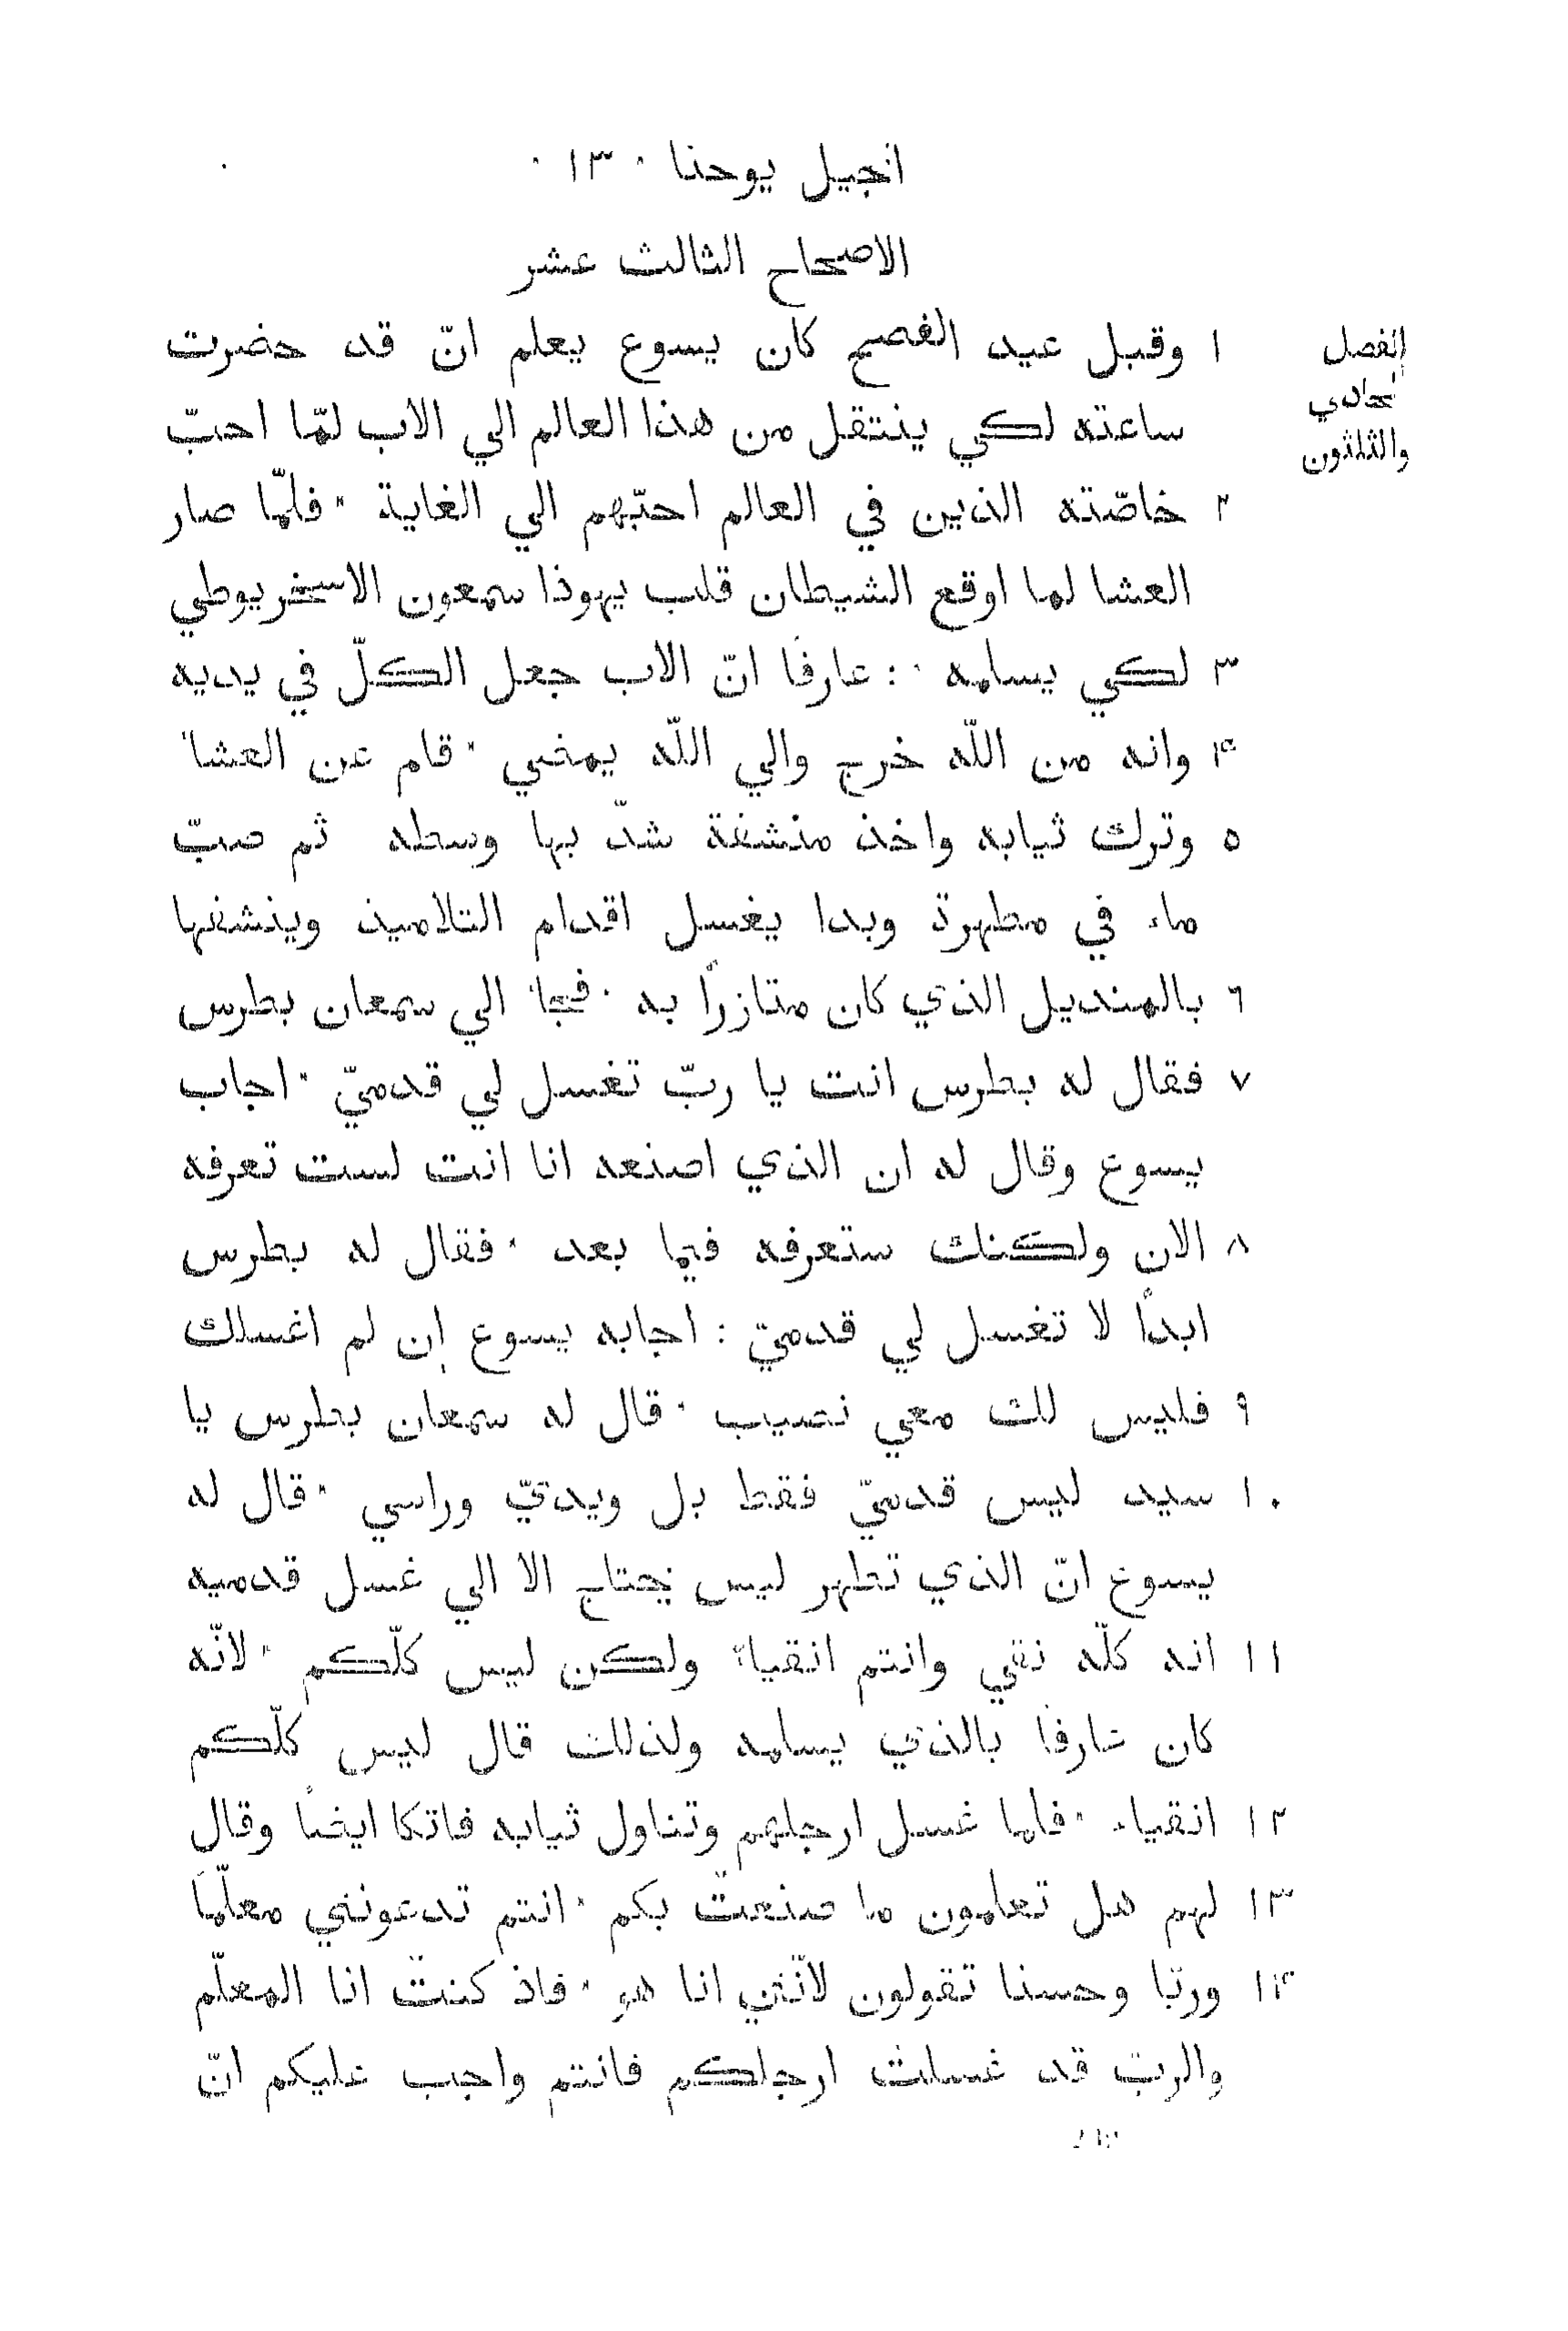 انجيل يوحنا ۰ ١٣ ۰
الاصحاح الثالث عشر
الفصل الحادي والثلثون
١ وقبل عيد الفصح كان يسوع يعلم انّ قد حضرت
ساعته لكي ينتقل من هذا العالم الي الاب لمّا احبّ
٢ خاصّته الذين في العالم احبّهم الي الغاية * فلمّا صار
العشا لما اوقع الشيطان قلب يهوذا سمعون الاسخريوطي
٣ لكي يسلمه * : عارفا انّ الاب جعل الكلّ في يديه
۴ وانه من اللّه خرج والي اللّه يمضي * قام عن العشاء
٥ وترك ثيابه واخذ منشفة شدّ بها وسطه ثم صبّ
ماء في مطهرة وبدا يغسل اقدام التلاميذ وينشفها
٦ بالمنديل الذي كان متازرًا به * فجاء الي سمعان بطرس
٧ فقال له بطرس انت يا ربّ تغسل لي قدميّ * اجاب
يسوع وقال له ان الذي اصنعه انا انت لست تعرفه
٨ الان ولكنك ستعرفه فيما بعد * فقال له بطرس
ابدًا لا تغسل لي قدميّ : اجابه يسوع إن لم اغسلك
٩ فليس لك معي نصيب * قال له سمعان بطرس يا
١٠ سيد ليس قدميّ فقط بل ويديّ وراسي * قال له
يسوع انّ الذي تطهر ليس يحتاج الا الي غسل قدميه
١١ انه كلّه نقي وانتم انقياء ولكن ليس كلّكم * لانّه
كان عارفا بالذي يسلمه ولذلك قال ليس كلّكم
١٢ انقياء * فلما غسل ارجلهم وتناول ثيابه فاتكا ايضًا وقال
١٣ لهم هل تعلمون ما صنعت بكم * انتم تدعونني معلّمًا
١۴ وربّا وحسنا تقولون لانّني انا هو * فاذ كنت انا المعلّم
والربّ قد غسلت ارجلكم فانتم واجب عليكم انّ